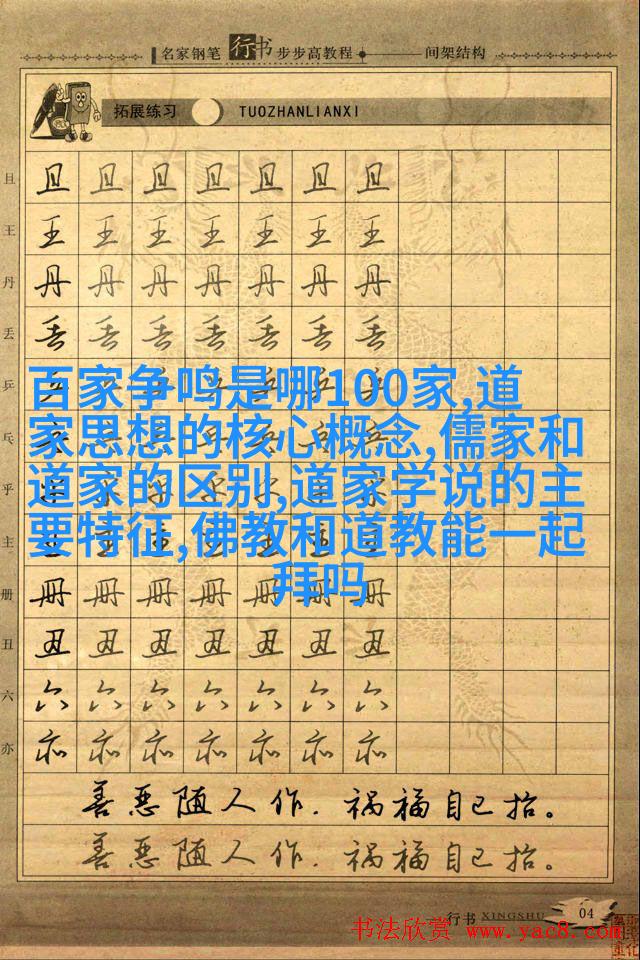 名家钢笔行书步步高教程 间架结构
拓展练习 TUOZHANLIANXI
且 且 且 且 且 且 且 且
王 王 王 王 王 王 王 王
丹 丹 丹 丹 丹 丹 丹 丹
丢 丢 丢 丢 丢 丢 丢 丢
百家争鸣是哪100家,道
家思想的核心概念,儒家和
道家的区别,道家学说的主
要特征,佛教和道教能一起
拜吗
乒
乓
乎
主
册 册 册 册 册 册 册 册
丑 丑 丑 丑 丑 丑 丑 丑
六 六 六 六 六 六 六 六
亦 亦 亦 亦 亦 亦 亦 亦
善恶随人作.祸福自己招。
善恶随人作.祸福自己招。
行书 XINGSHU 04
书法欣赏 www.yac8.com